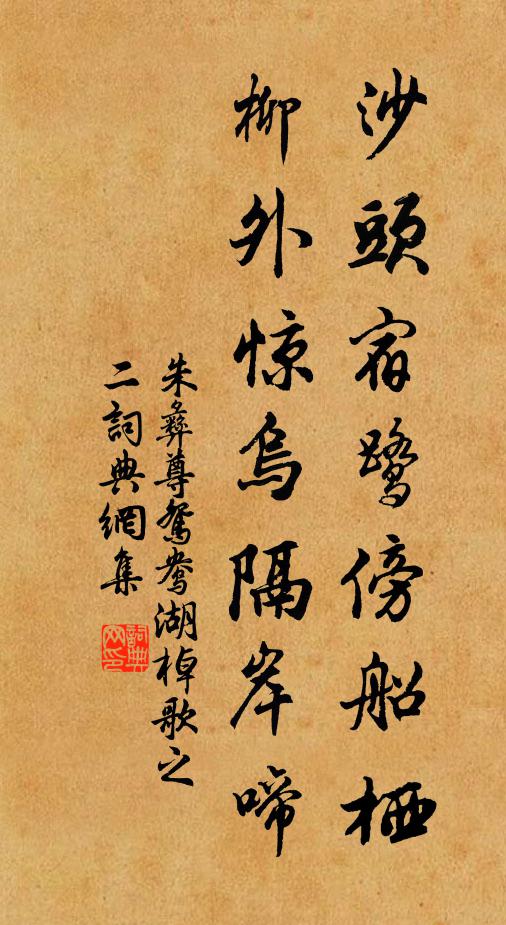 沙頭宿鷺傍船栖
柳外惊烏隔岸啼
朱彝尊鴛鴦湖棹歌之
二詞典網集
詞典網印